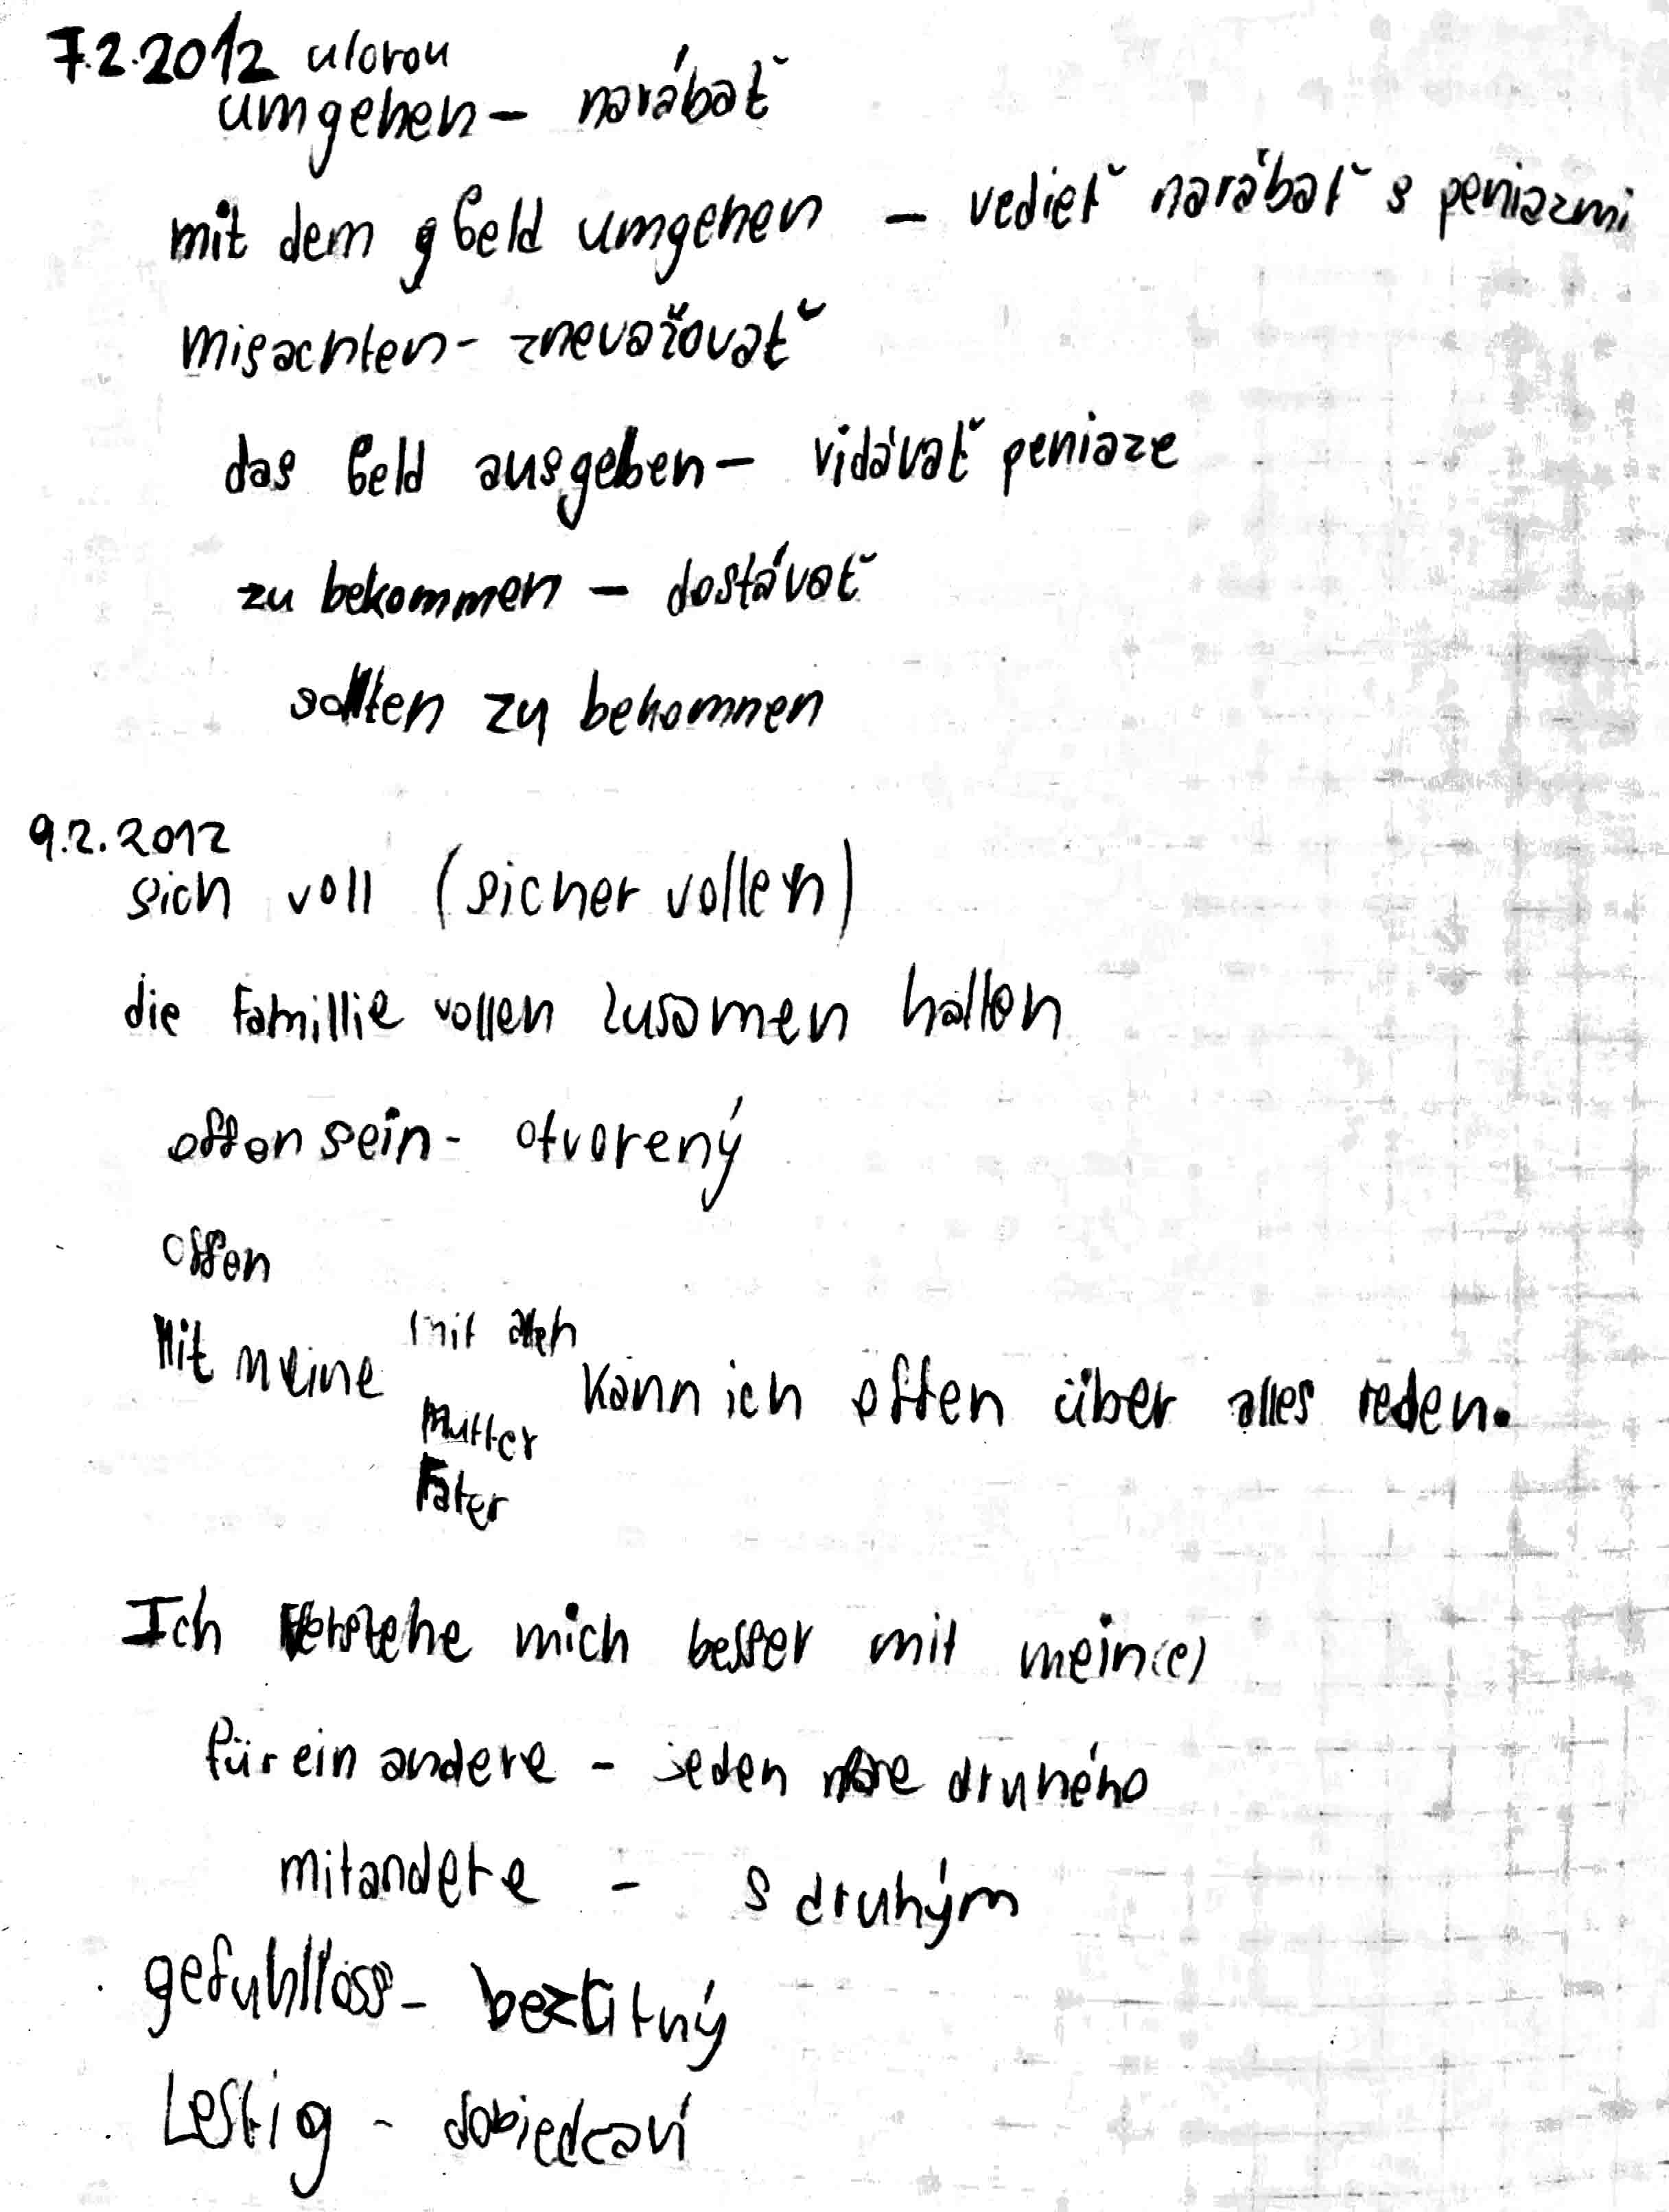 7.2.2012 ulorou
umgehen – narábať
mit dem g Geld umgehen – vedieť narábať s peniazmi
misachten - znevažovať
das Geld ausgeben – vidávať peniaze
zu bekommen – dostávať
sollten zu bekomnen
9.2.2012
sich voll (sicher vollen)
die Famillie vollen zusamen halten
offen sein - otvorený
offen
Mit meine mit
Mutter
Fater
kann ich offen über alles reden.
Ich Verstehe mich besser mit mein(e)
für ein andere – jeden druhého
mitandere – s druhým
gefuhlloss – bezcitný
Lestig – dobiedzaví